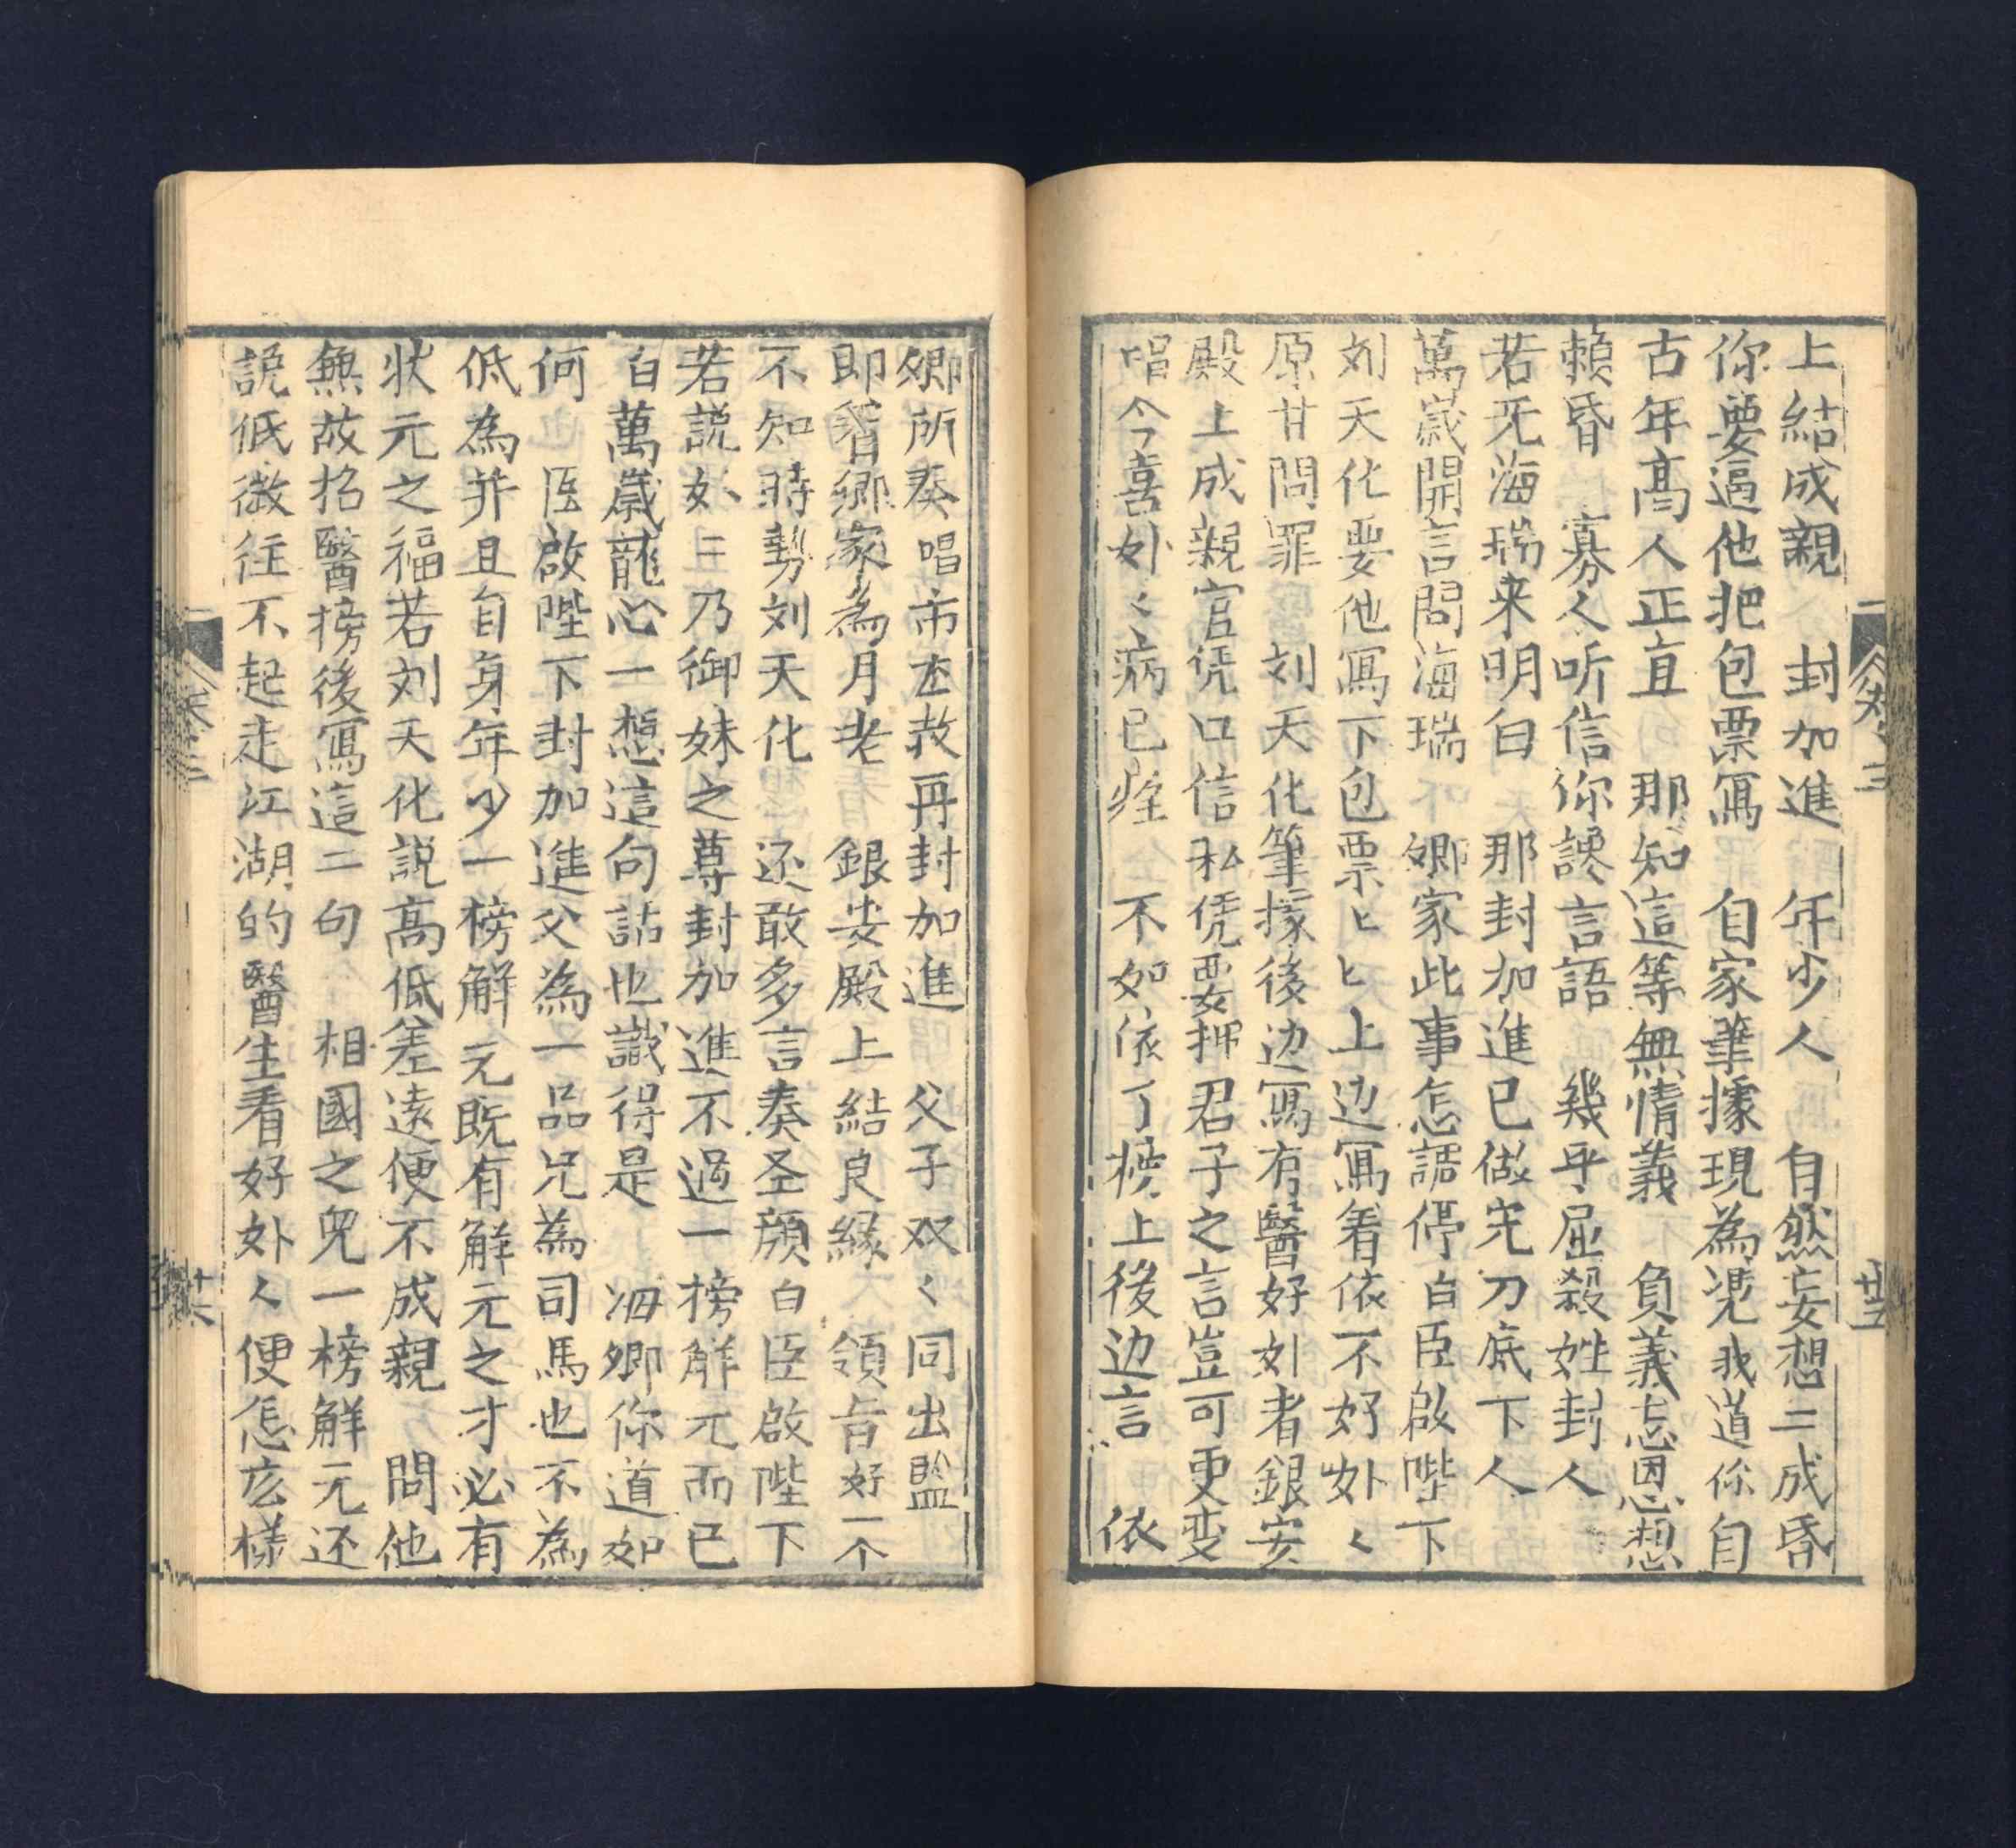 上結成親　封加進　年少人　自然妄想二成昏
你要逼他把包票寫　自家筆據現為凴我道你自
古年高人正直　那知這等無情義　負義忘恩想
賴昏　寡人听信你讒言語　幾乎屈殺姓封人
若无海瑞来明白　那封加進已做完刀底下人
萬嵗開言問海瑞　卿家此事怎諕停白臣啟陛下
刘天化要他寫下包票匕匕上边寫着依不好妙〻
原甘問罪　刘天化筆據後边寫有醫好妙者銀安
殿上成親官凭口信私凭要押君子之言豈可更变
唱今喜妙〻病已痊　不如依了榜上後边言　依
卿所奏唱市㐀敖再封加進　父子双〻同出監
即晉卿家為月老　銀安殿上結良緣　領旨好一个
不知時勢刘天化　还敢多言奏圣顔白臣啟陛下
若説妙二乃御妹之尊封加進不過一榜觧元而已
白萬歳龍心一想這句話也識得是　海卿你道如
何　臣啟陛下封加進父為一品兄為司馬也不為
低為并且自身年少一榜解元既有觧元之才必有
状元之福若刘天化説高低差遠便不成親　問他
無故招醫榜後寫這二句　相國之兒一榜觧元还
説低微往不起走江湖的醫生看好妙〻便怎庅様
卷三
廿五
卷三
廿六